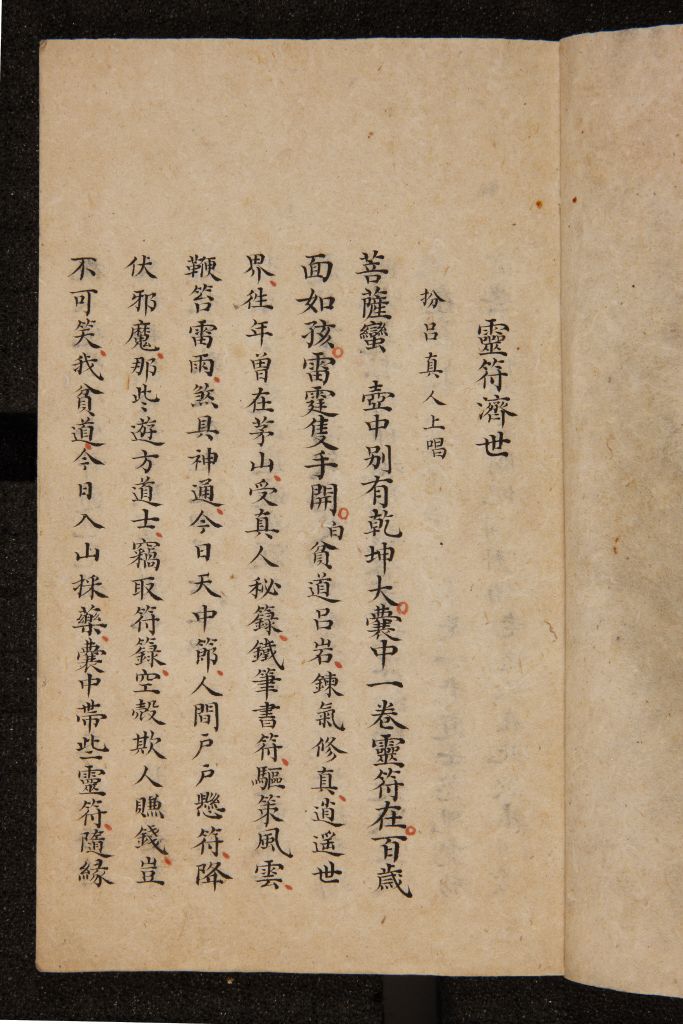 靈符濟世
扮呂真人上唱
菩薩蠻　壺中别有乾坤大。囊中一卷靈符在。百歲
面如孩。雷霆隻手開。白貧道呂岩、鍊氣修真、逍遥世
界、徃年曾在茅山、受真人秘籙、鐵筆書符、驅策風雲、
鞭笞雷雨、煞具神通、今日天中節、人間戸戸懸符、降
伏邪魔、那些遊方道士、竊取符籙、空殼欺人賺錢、豈
不可笑、我貧道、今日入山採藥、囊中帶些靈符、隨緣